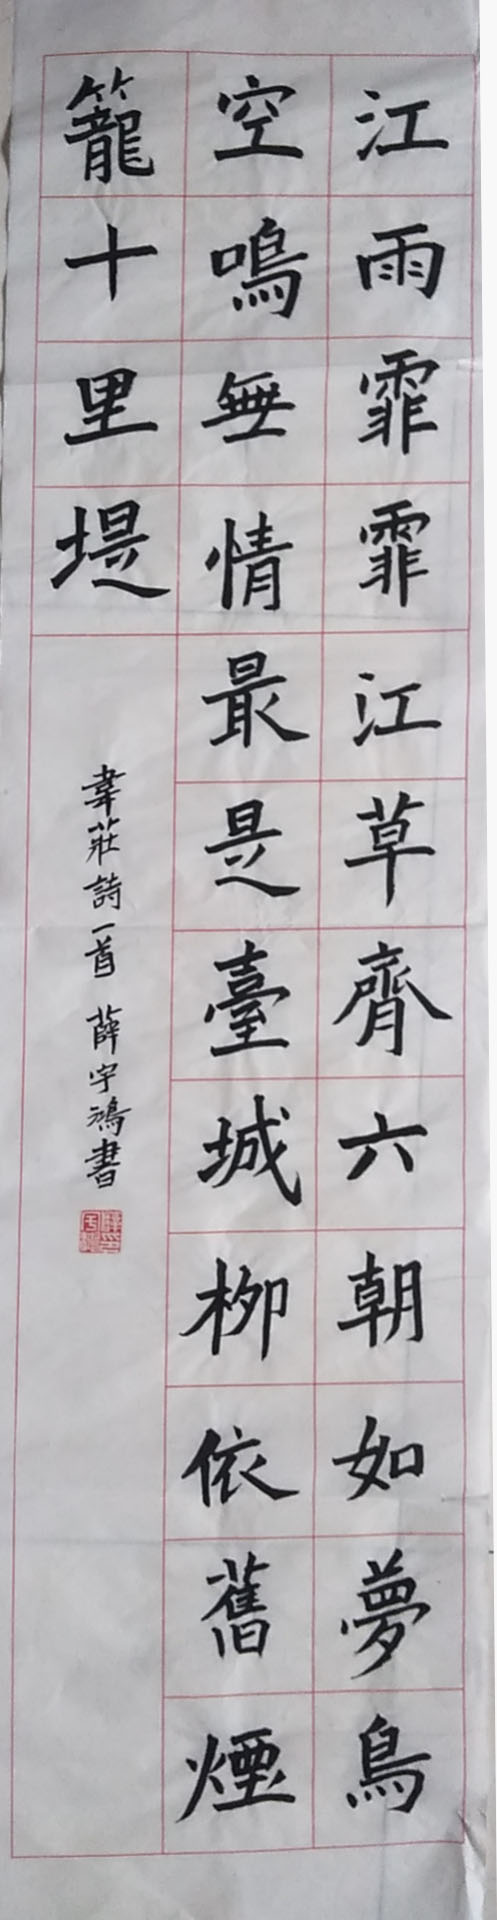 江雨霏霏江草齊六朝如夢鳥
空鳴無情最是臺城柳依舊煙
籠十里堤
韋莊詩一首 薛宇鴻書